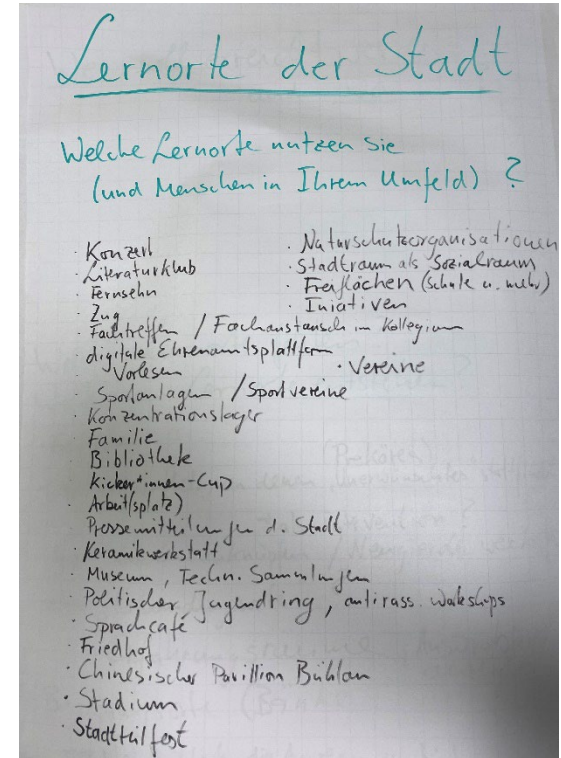 Lernorte der Stadt
Welche Lernorte nutzen Sie
(und Menschen in Ihrem Umfeld) ?
· Konzert
· Literaturklub
· Fernsehn
· Zug
· Fachtreffen / Fachaustausch im Kollegium
· digitale Ehrenamtsplattform
· Vorlesen
· Sportanlagen / Sportvereine
· Konzentrationslager
· Familie
· Bibliothek
· Kicker*innen-Cup
· Arbeit(splatz)
· Pressemitteilungen d. Stadt
· Keramikwerkstatt
· Museum, Techn. Sammlungen
· Politischer Jugendring, antirass. Workshops
· Sprachcafé
· Friedhof
· Chinesischer Pavillion Bühlau
· Stadium
· Stadtteilfest
· Naturschutzorganisationen
· Stadtraum als Sozialraum
· Freiflächen (Schule u. mehr)
· Iniativen
· Vereine